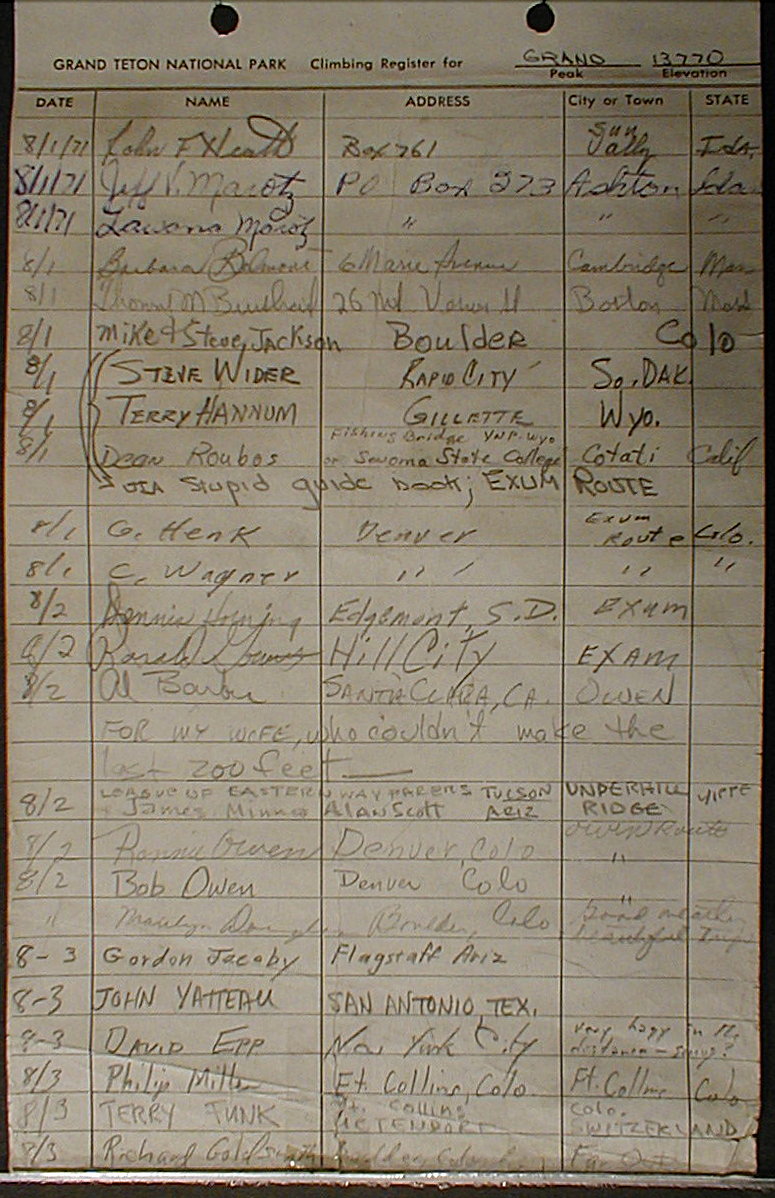 GRAND TETON NATIONAL PARK Climbing Register for GRAND 13770
Peak Elevation
DATE NAME ADDRESS City or Town STATE
8/1/71 John F Box 761 Sun Vally Ida.
8/1/71 Jeff V. Marotz PO Box 273 Ashton Ida
8/1/71 Lawona Marotz " " "
8/1 Barbara 6 Marie Avenue Cambridge Mass
8/1 Thomas M 26 Boston Mass
8/1 Mike & Steve Jackson Boulder Colo
8/1 STEVE WIDER RAPID CITY So. DAK.
8/1 TERRY HANNUM GILLETTE Wyo.
Fishing Bridge YNP. Wyo
8/1 Dean Roubos or Sonoma State College Cotati Calif
VIA Stupid guide book; EXUM ROUTE
8/1 G. Henk Denver Exum Route Colo.
8/1 C. Wagner " " "
8/2 Dennis Horning Edgemont, S.D. Exum
8/2 Hill City EXAM
8/2 Al Barbu SANTA CLARA, CA. OWEN
FOR MY WIFE, who couldn't make the
last 200 feet
LEAGUE OF EASTERN WAYFARERS TUCSON UNDERHILL YIPPE
8/2 + James Minno Alan Scott ARIZ RIDGE
8/2 Ronnie Owen Denver, Colo Owen Route
8/2 Bob Owen Denver Colo "
" Marilyn Boulder, Colo " Good weather
beautiful
8-3 Gordon Jacoby Flagstaff Ariz
8-3 JOHN YATTEAU SAN ANTONIO, TEX.
8-3 DAVID EPP New York City very hazy in the
distance - smog?
8/3 Philip Miller Ft. Collins, Colo. Ft. Collins Colo
8/3 TERRY FUNK Ft. Collins Colo.
SWITZERLAND
8/3 Richard Goldsmith Boulder, Far Out